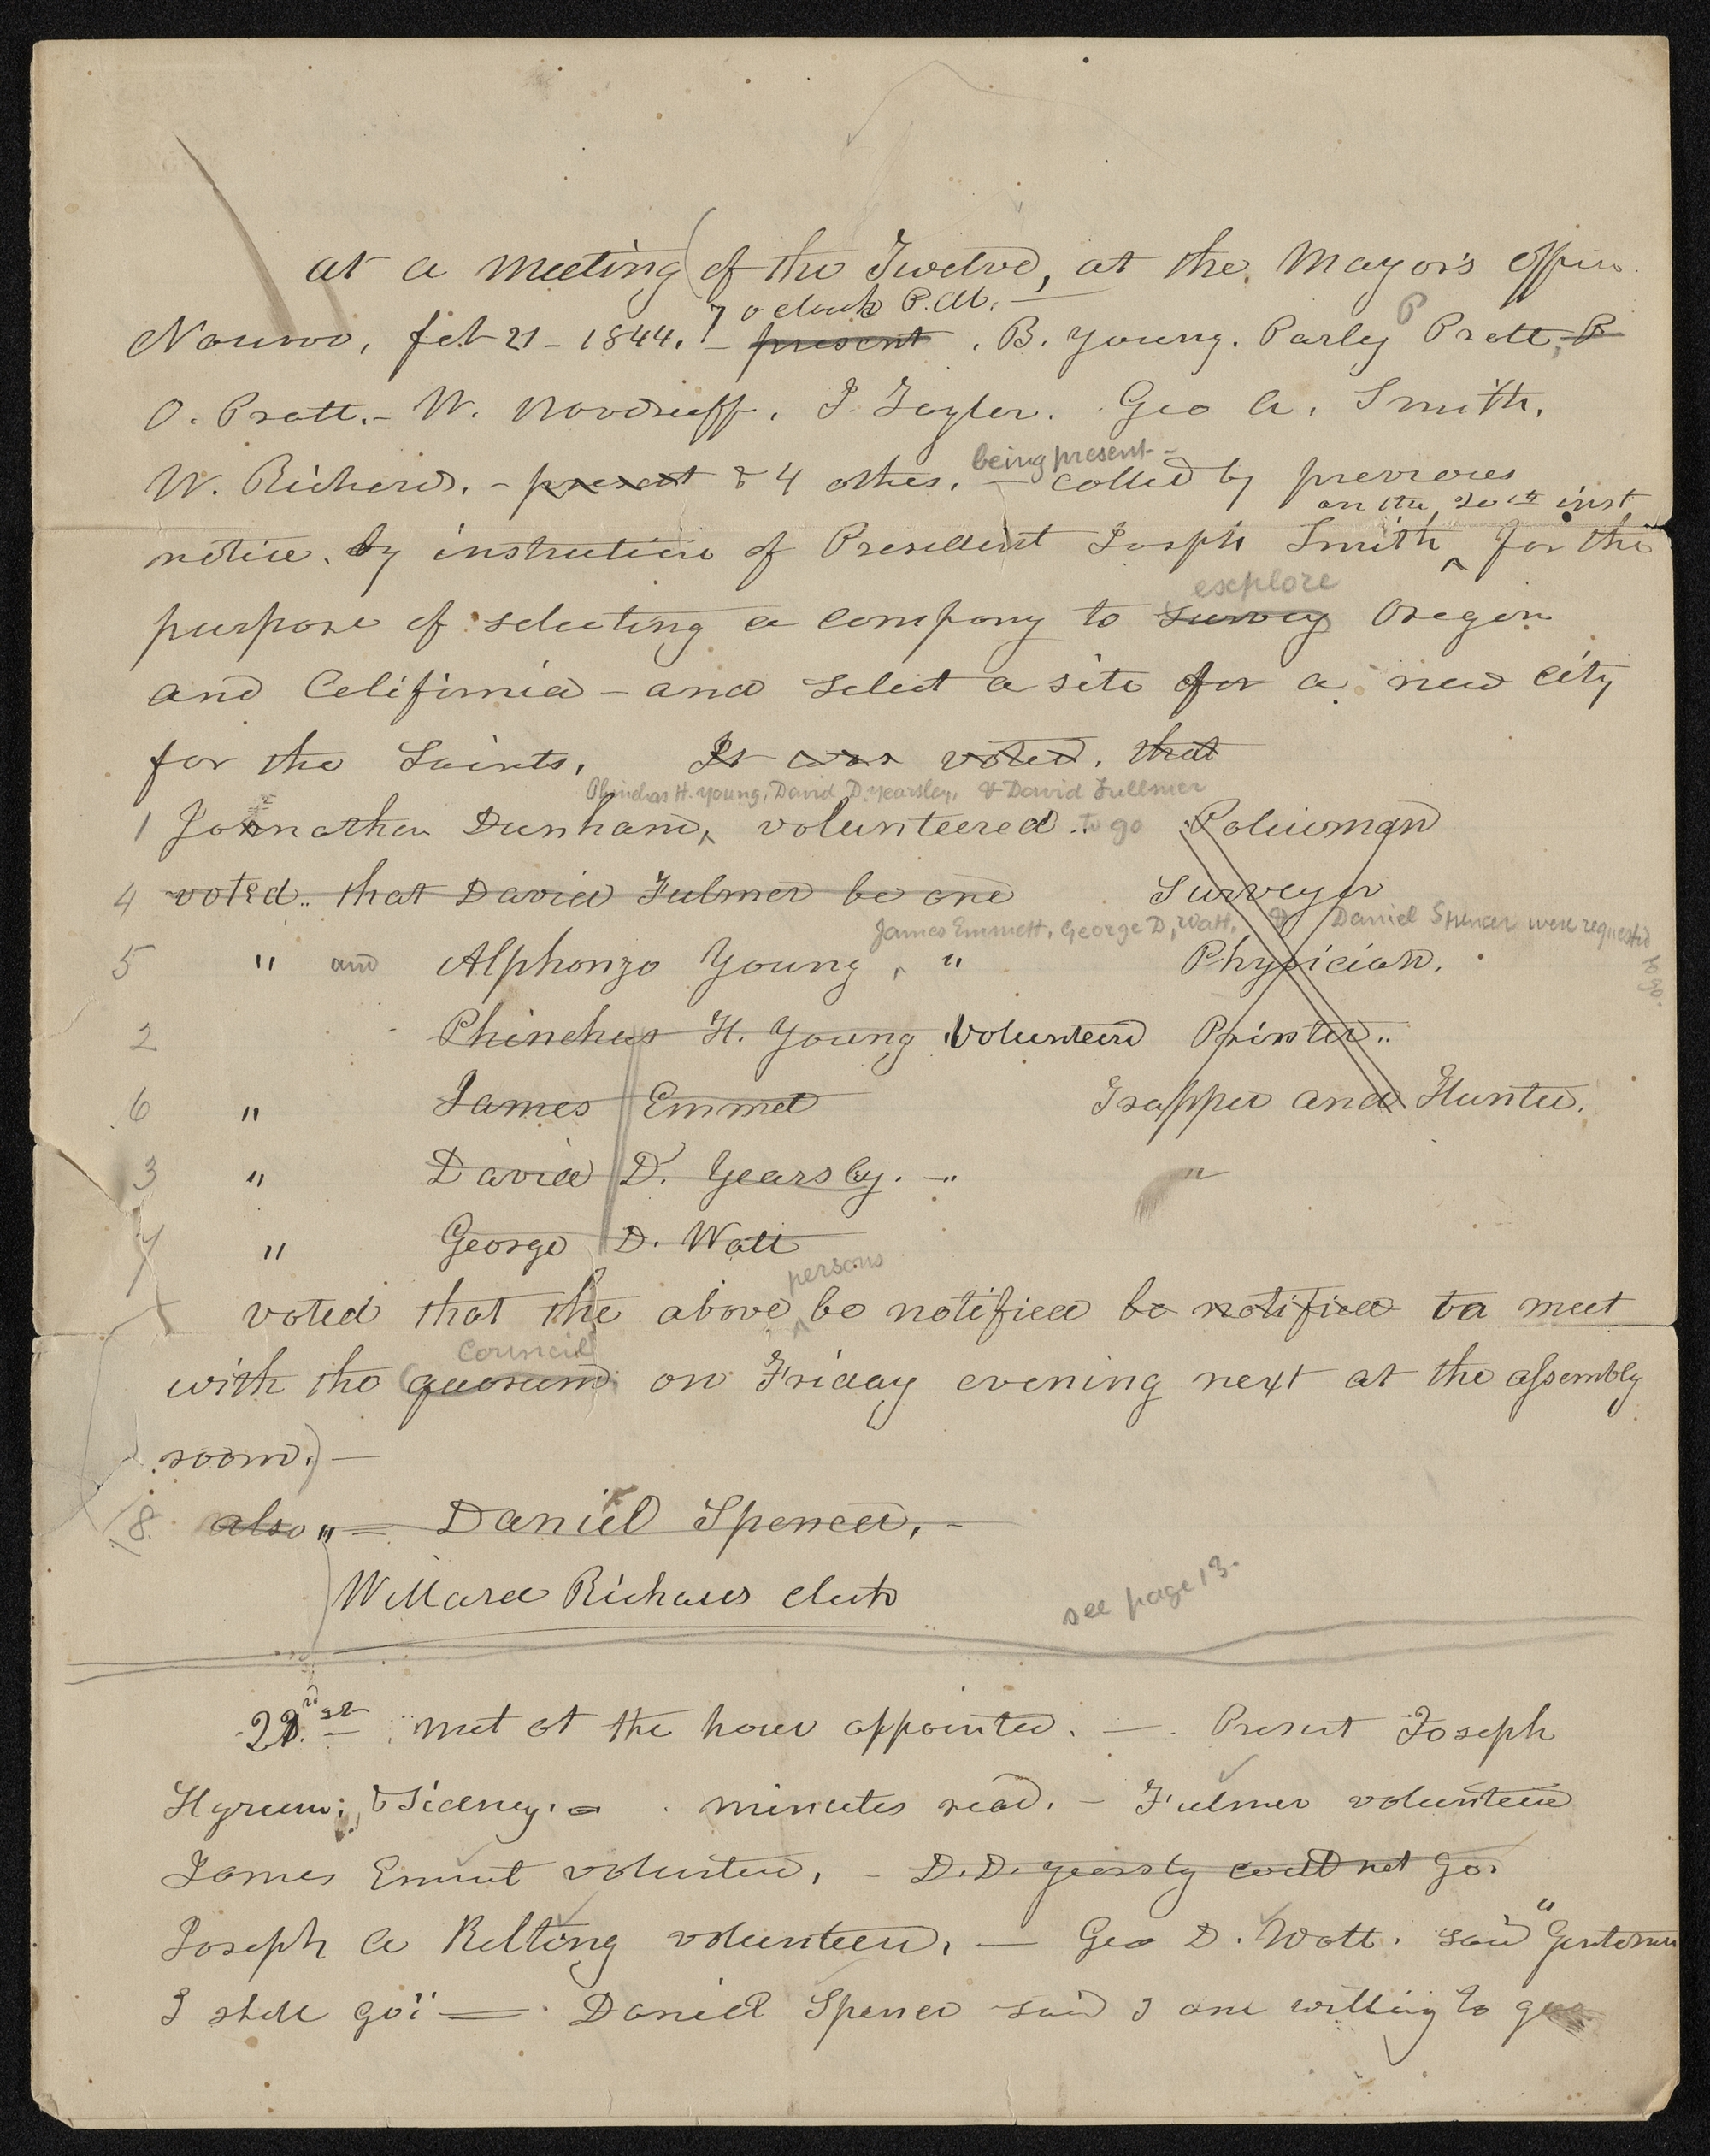 at a meeting (of the Twelve, at the Mayor's office
7 o clock P.M. —
Nauvoo, feb 21 – 1844. – present . B. Young. Parley P Pratt, P
O. Pratt. – W. Woodruff, J. Taylor. Geo A. Smith,
being present –
W. Richards. – present & 4 others. – called by previous
on the 20th inst
notice. by instruction of President Joseph Smith ^ for the
explore
purpose of selecting a company to survey Oregon
and California – and select a site for a new city
for the Saints. It was voted. that
Phinehas H. Young, David D. Yearsley, & David Fullmer
1 Jonnathan Dunham, ^ volunteered .. to go Policeman
4 voted .. that David Fulmer be one Surveyor
James Emmett, George D, Watt, & Daniel Spencer were requested to go.
5 " and Alphonzo Young , ^ " Physician.
2 Phinehas H. Young volunteerd Printer..
6 " James Emmet Trapper and Hunter.
3 " David D. Yearsley. – " "
7 " George D. Watt
persons
voted that the above ^ be notified be notified to meet
Council
with the quorum on Friday evening next at the assembly
room.) —
(8. also " = Daniel Spencer. –
Willard Richards clerk
see page 13.
23rd met at the hour appointed. — . Present Joseph
Hyrum; & Sidney. = . minutes read. – Fulmer volunteerd
James Emmet volunteerd, – D. D. Yearsly could not go.
Joseph A Kelting volunteerd, — Geo D. Watt. said "Gentlemen
I shall go" — Daniel Spencer said I am willing to go